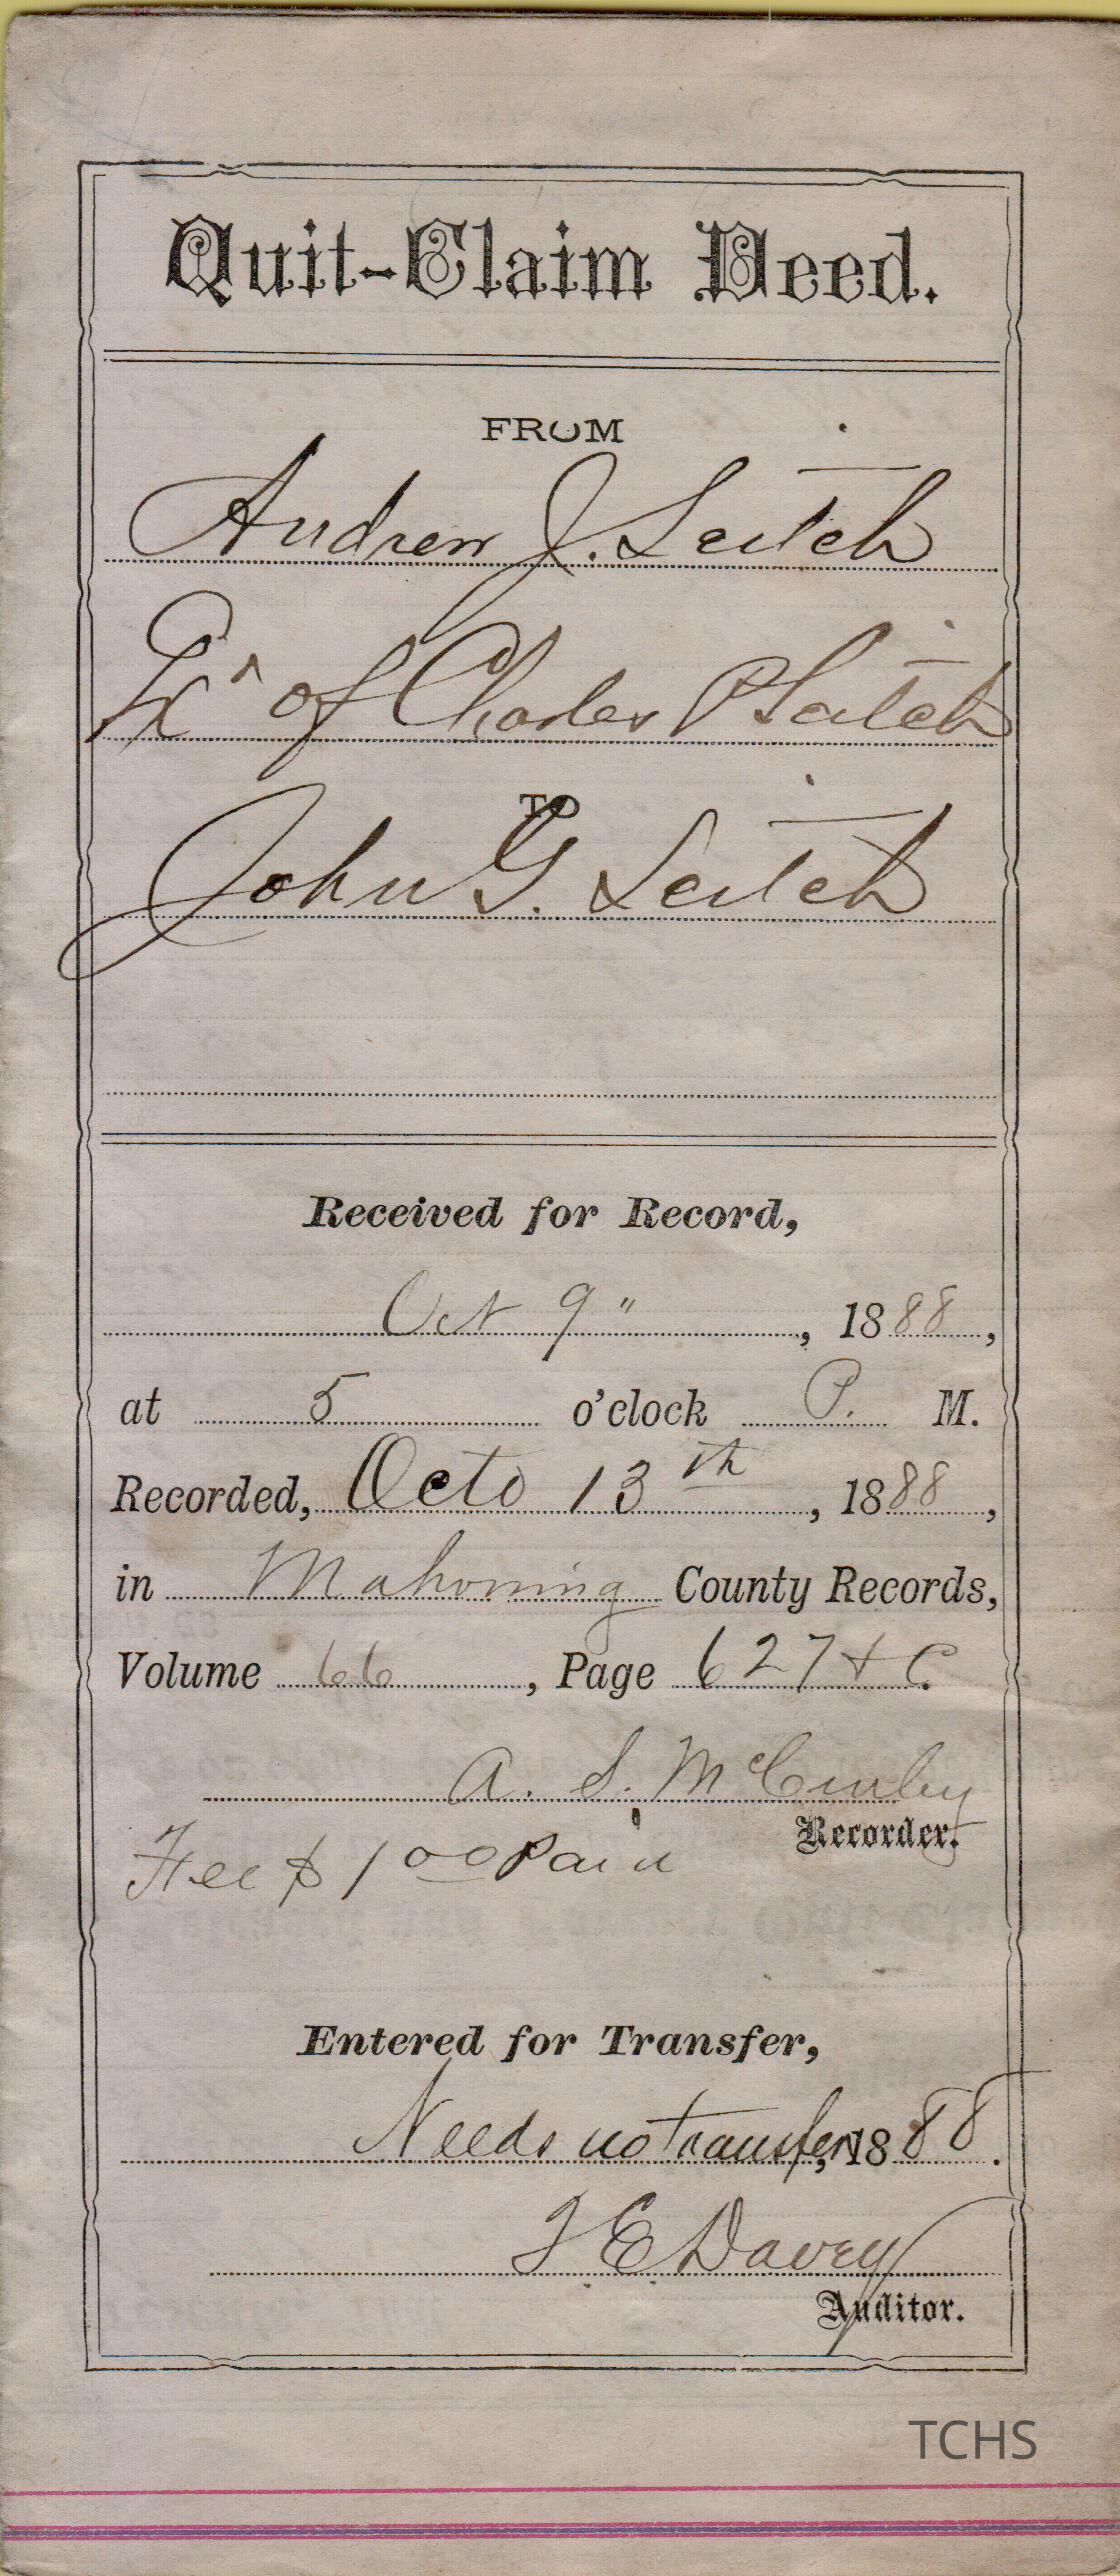 Quit-Claim Deed.
FROM
Andrew J. Leitch
Exr of Charles P Leitch
TO
John G. Leitch
Received for Record,
Oct 9", 1888,
at 5 o'clock P. M.
Recorded, Octo 13th, 1888,
in Mahoning County Records,
Volume 66, Page 627 + C.
A. S. McCurley
Recorder.
Fee $1 00 Paid
Entered for Transfer,
Needs no transfer, 1888.
J E Davey
Auditor.
TCHS